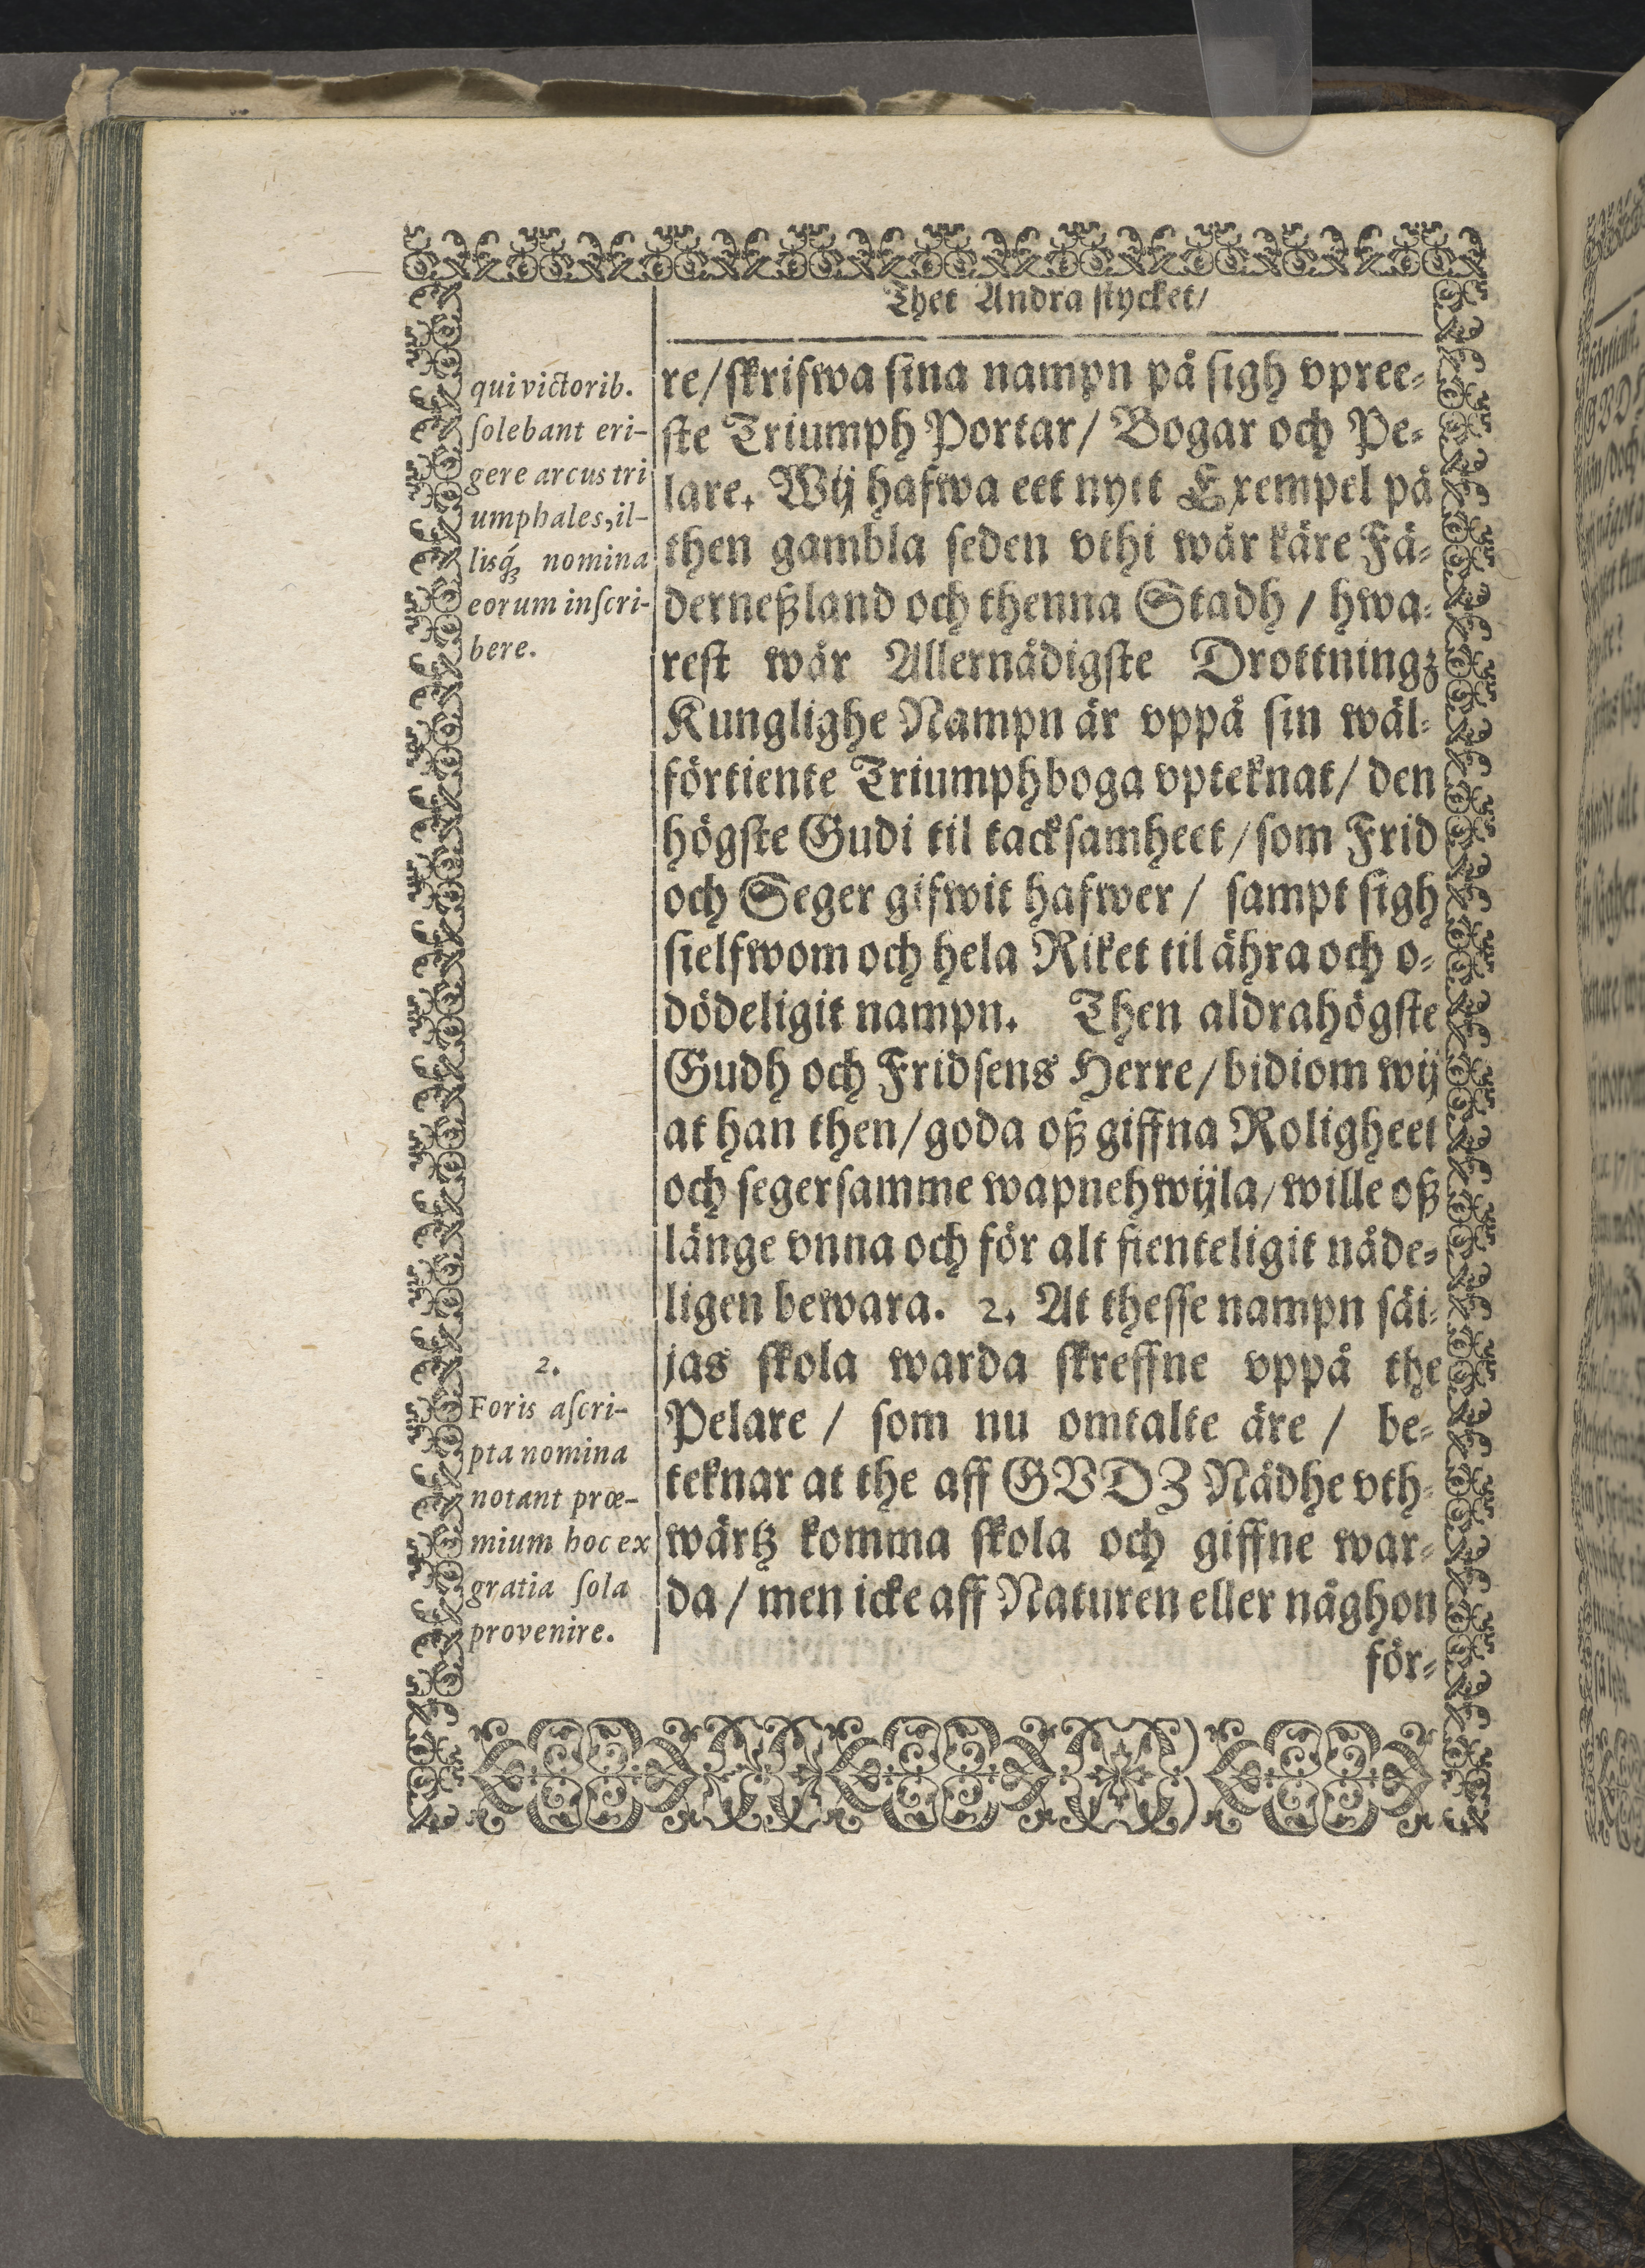 Thet Andra stycket/
qui victorib.
ſolebant eri-
gere arcus tri
umphales, il-
lisq́ꝫ nomina
eorum inſcri-
bere.
re/ſkrifwa ſina nampn på ſigh vpree-
ſte Triumph Portar/ Bogar och Pe-
lare. Wij hafwa eet nytt Exempel på
then gambla ſeden vthi wår käre Fä-
derneßland och thenna Stadh / hwa-
reſt wår Allernådigſte Drottningz
Kunglighe Nampn är vppå ſin wäl-
förtiente Triumphboga vpteknat/ den
högſte Gudi til tackſamheet/ſom Frid
och Seger gifwit hafwer / ſampt ſigh
ſielfwom och hela Riket til ähra och o-
dödeligit nampn. Then aldrahögſte
Gudh och Fridſens Herre/bidiom wij
at han then/goda oß giffna Roligheet
och ſegerſamme wapnehwijla/wille oß
länge vnna och för alt fienteligit nåde-
ligen bewara. 2. At theſſe nampn ſäi-
jas ſkola warda ſkreffne vppå the
Pelare / ſom nu omtalte äre / be-
teknar at the aff GVDZ Nådhe vth-
wärtz komma ſkola och giffne war-
da / men icke aff Naturen eller någhon
för-
2.
Foris aſcri-
pta nomina
notant præ-
mium hoc ex
gratia ſola
provenire.